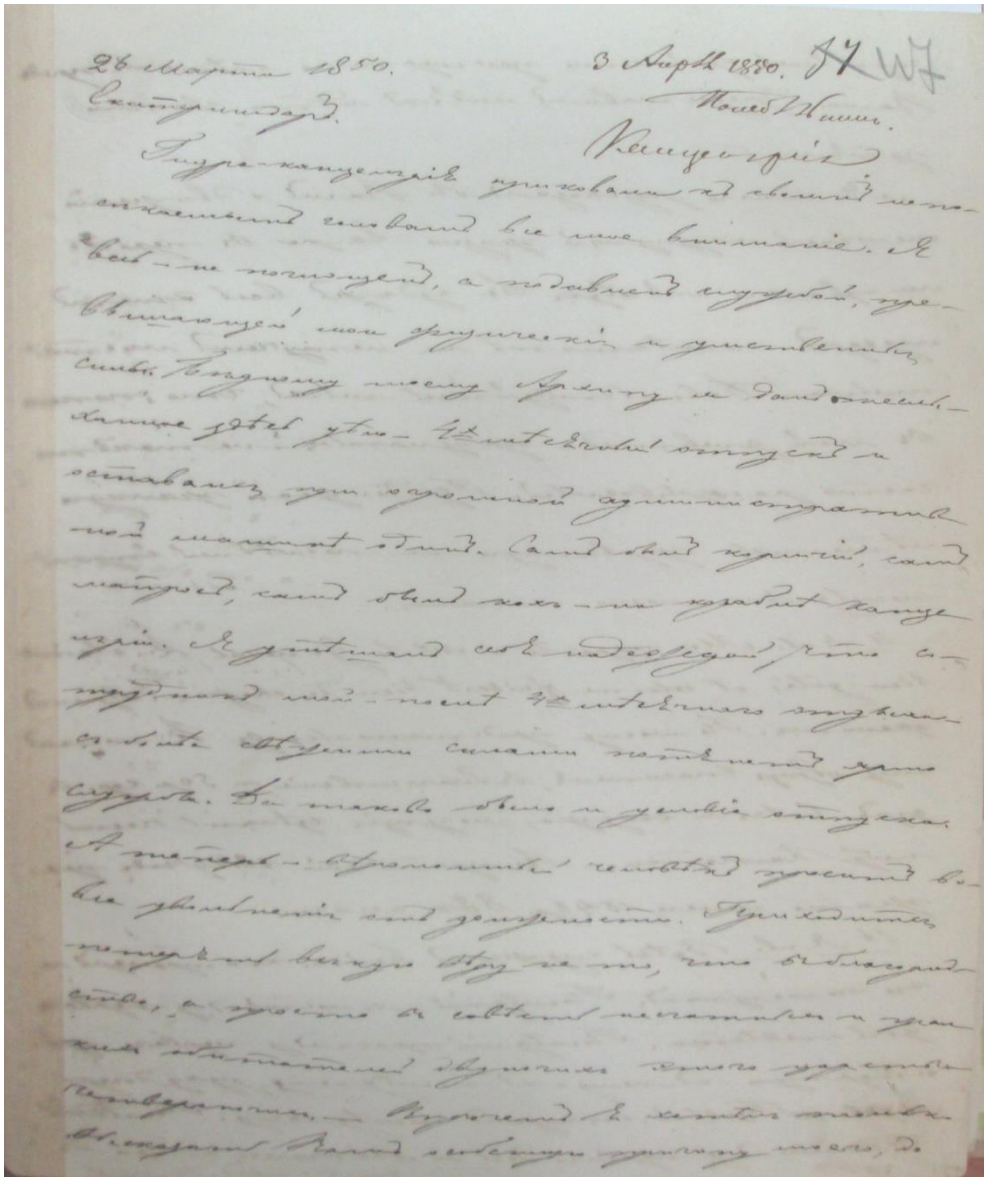 26 Марта 1850.
3 Апр. 1850. 37
Екатеринодаръ.
Канцелярія
Гидра-канцелярія приковала къ своимъ непо-
головамъ все мое вниманіе. Я
весь – не поглощенъ, а подавленъ службой, пре-
вышающей мои физическія и умственныя
силы. Бѣдному моему Архипу я далъ
здѣсь дѣло – 4хъ мѣсячный отпускъ и
оставался при огромной административ
ной машинѣ одинъ. Самъ былъ кормчій, самъ
матросъ, самъ былъ кокъ – на кораблѣ канце
ляріи. Я утѣшалъ себя надеждой, что со-
трудникъ мой – послѣ 4хъ мѣсячнаго отдыха
съ болѣе свѣжими силами потянетъ ярмо
службы. Да таково было и условіе отпуска.
А теперь – вѣроломный человѣкъ проситъ во-
все увольненія отъ должности. Приходится
потерять всякую вѣру не то, что въ благород-
ство, а просто въ совѣсть
обитателей двуногихъ этого
четвероногихъ. – Впрочемъ я хотѣлъ только
высказать Вамъ особенную причину моего, до